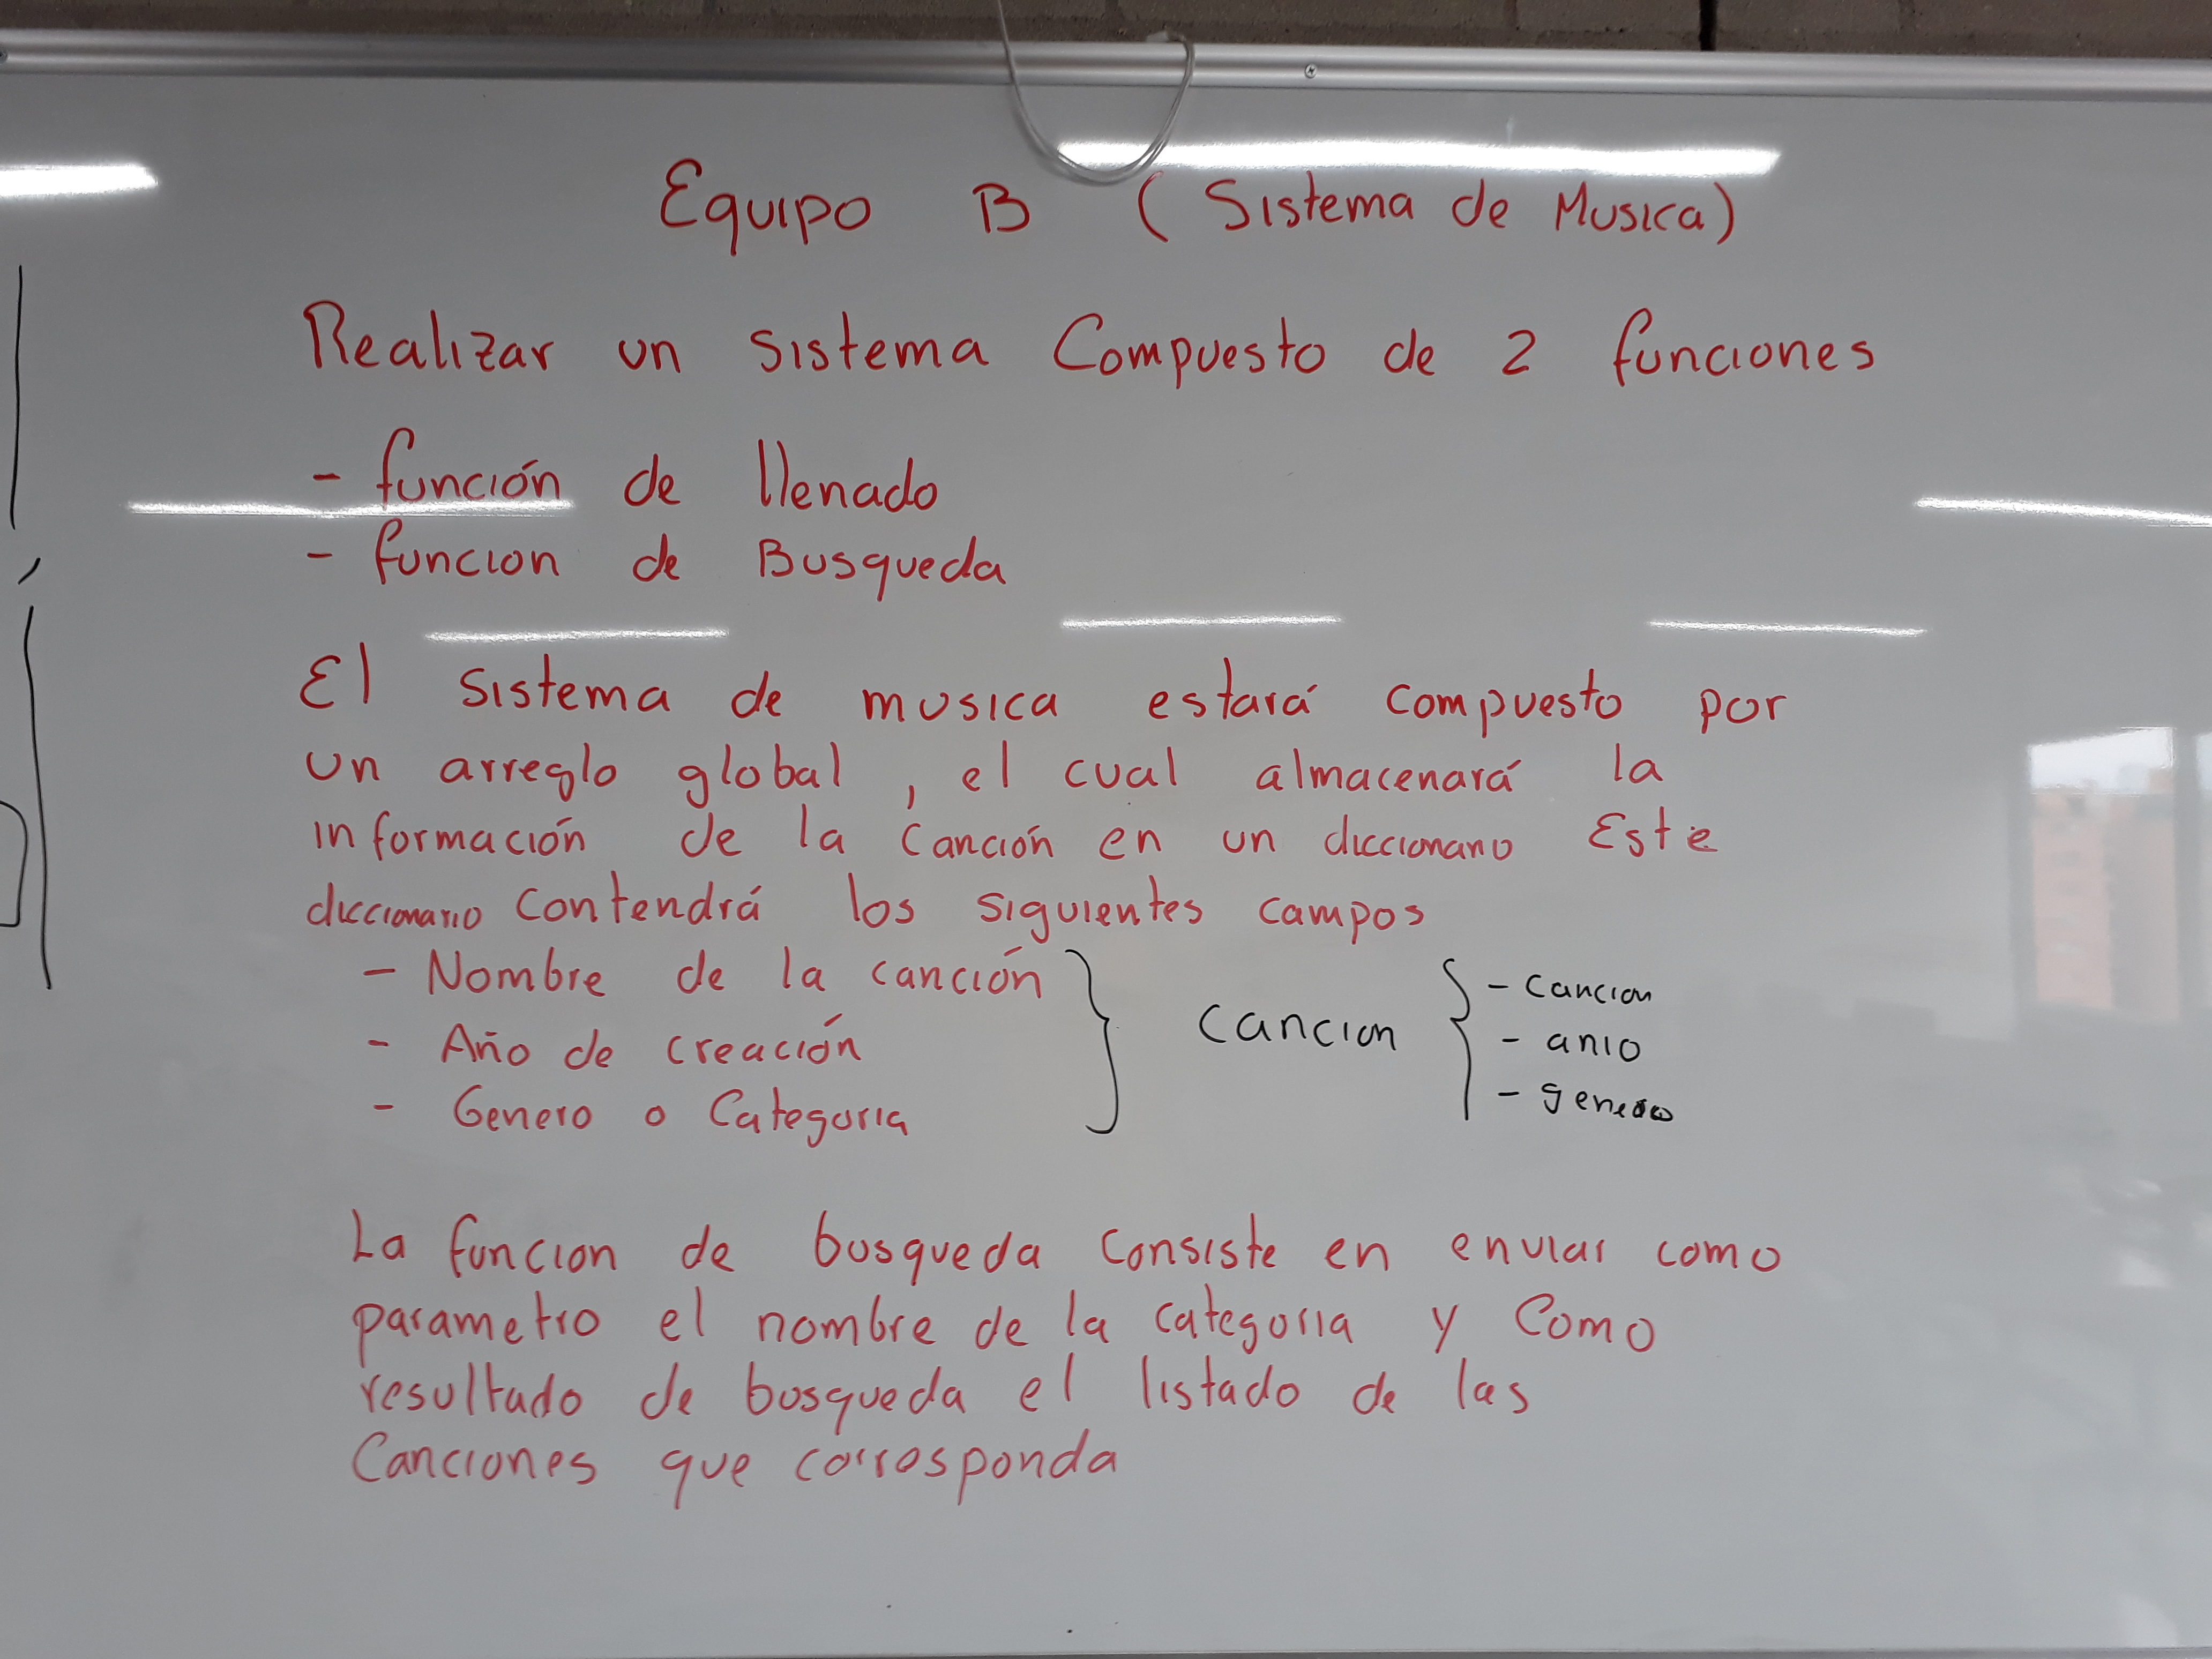 Equipo B (Sistema de Musica)
Realizar un sistema Compuesto de 2 funciones
- función de llenado
- funcion de Busqueda
El sistema de musica estará compuesto por
un arreglo global, el cual almacenará la
información de la canción en un diccionario Este
diccionario contendrá los siguientes campos
- Nombre de la canción
- Año de creación
- Genero o Categoria
cancion
- cancion
- anio
- genero
La funcion de busqueda consiste en enviar como
parametro el nombre de la categoria y como
resultado de busqueda el listado de las
Canciones que corrosponda